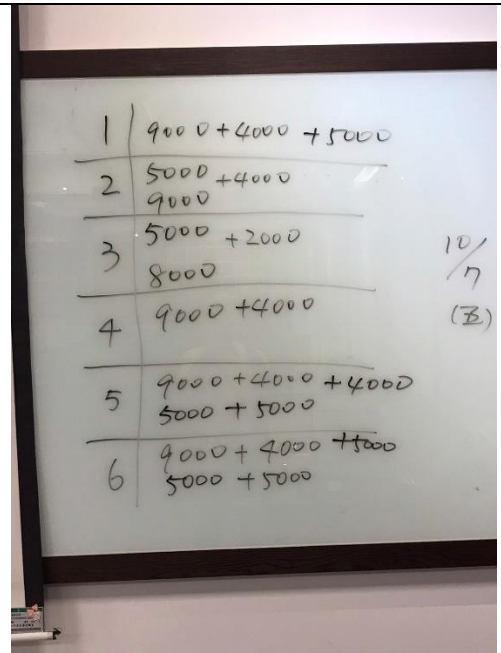 1 9000+4000+5000
2 5000+4000
9000
3 5000+2000
8000
4 9000+4000
5 9000+4000+4000
5000+5000
6 9000+4000+5000
5000+5000
10/7
(五)